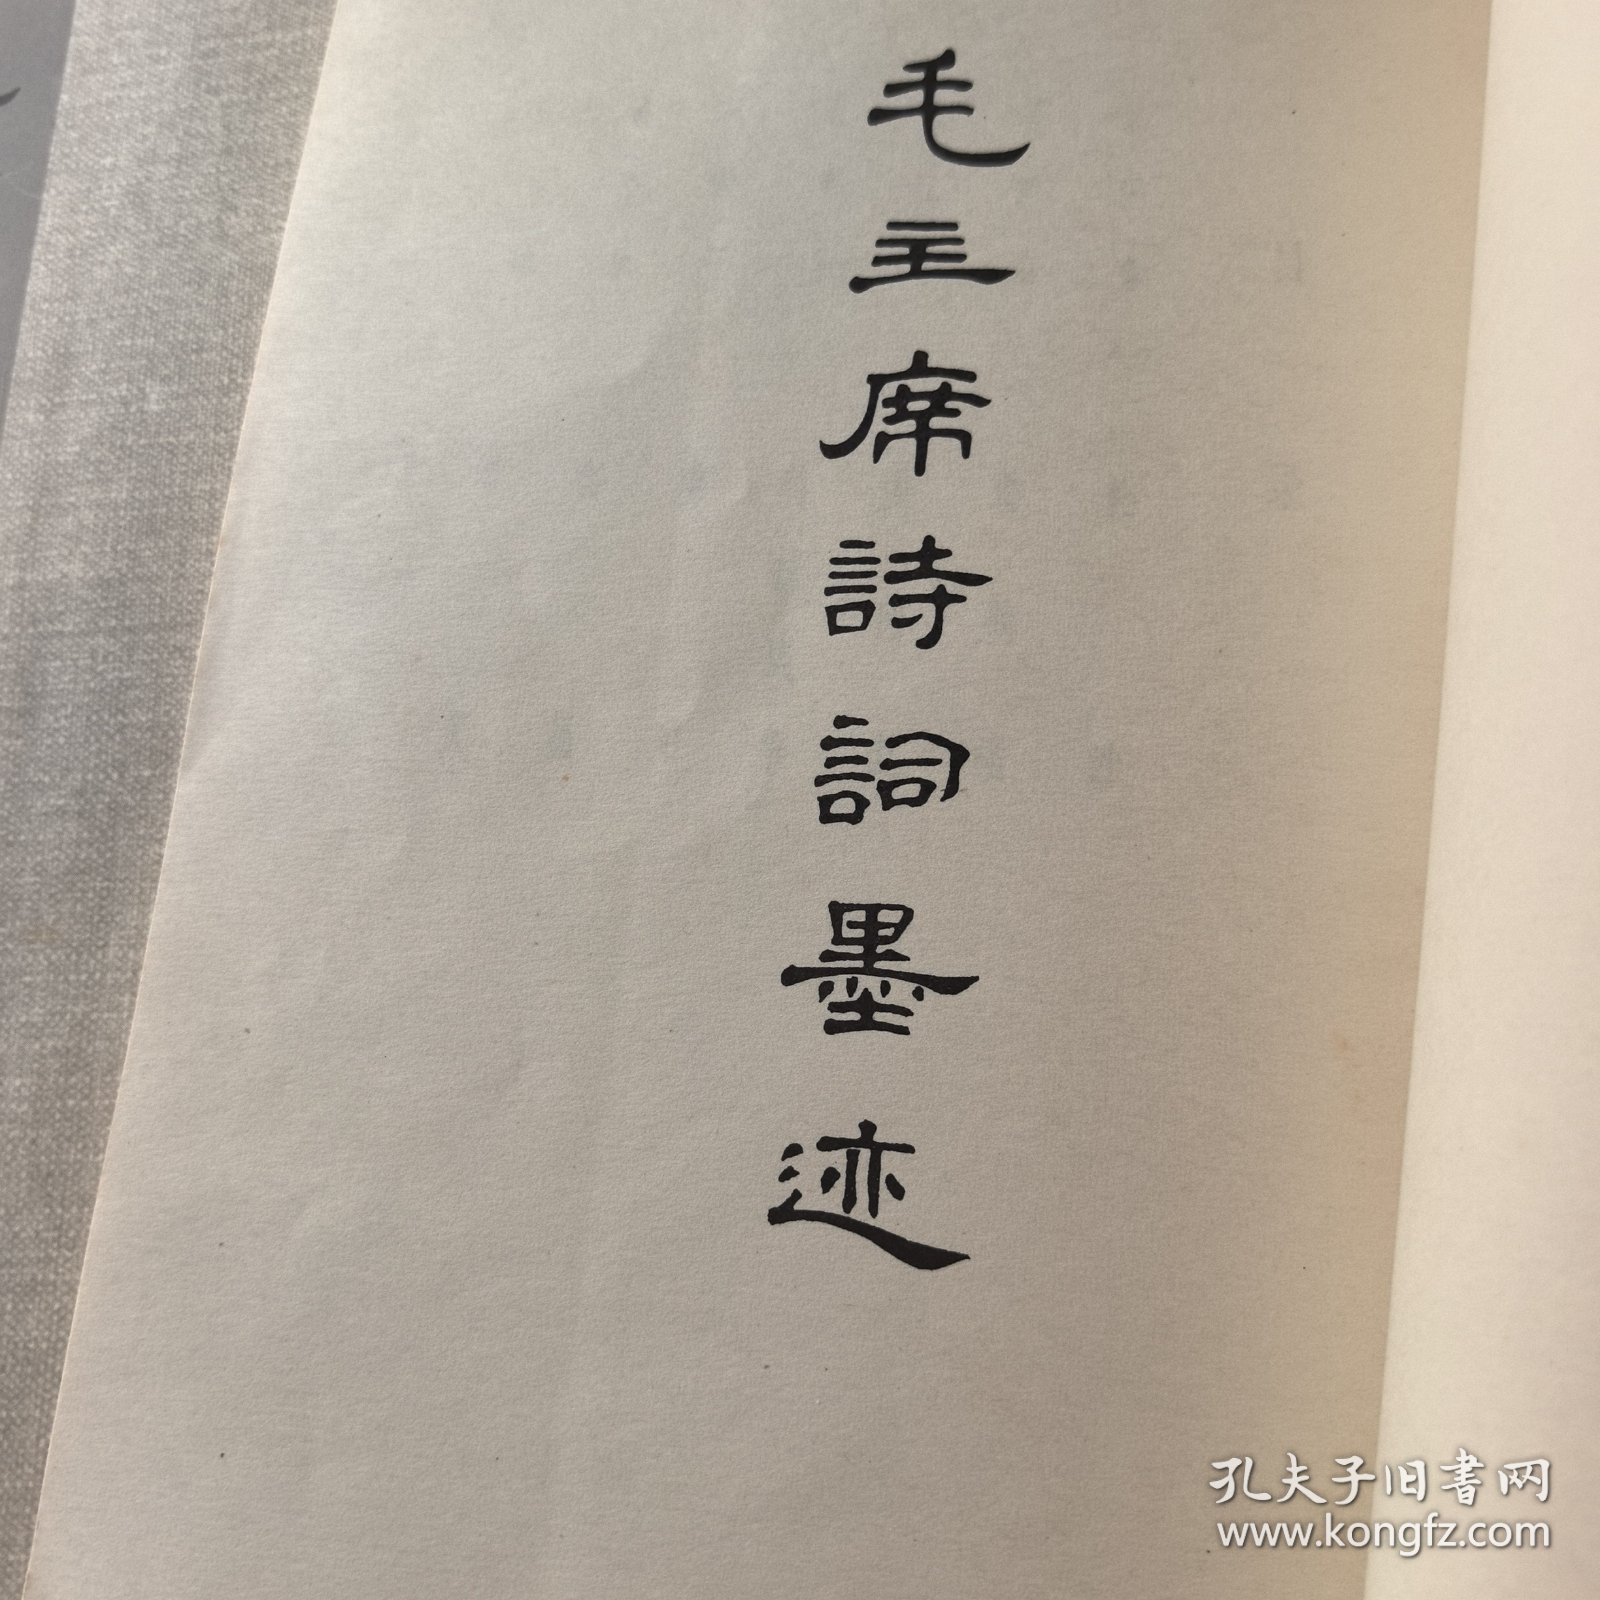 毛主席詩詞墨迹
孔夫子旧書网
www.kongfz.com